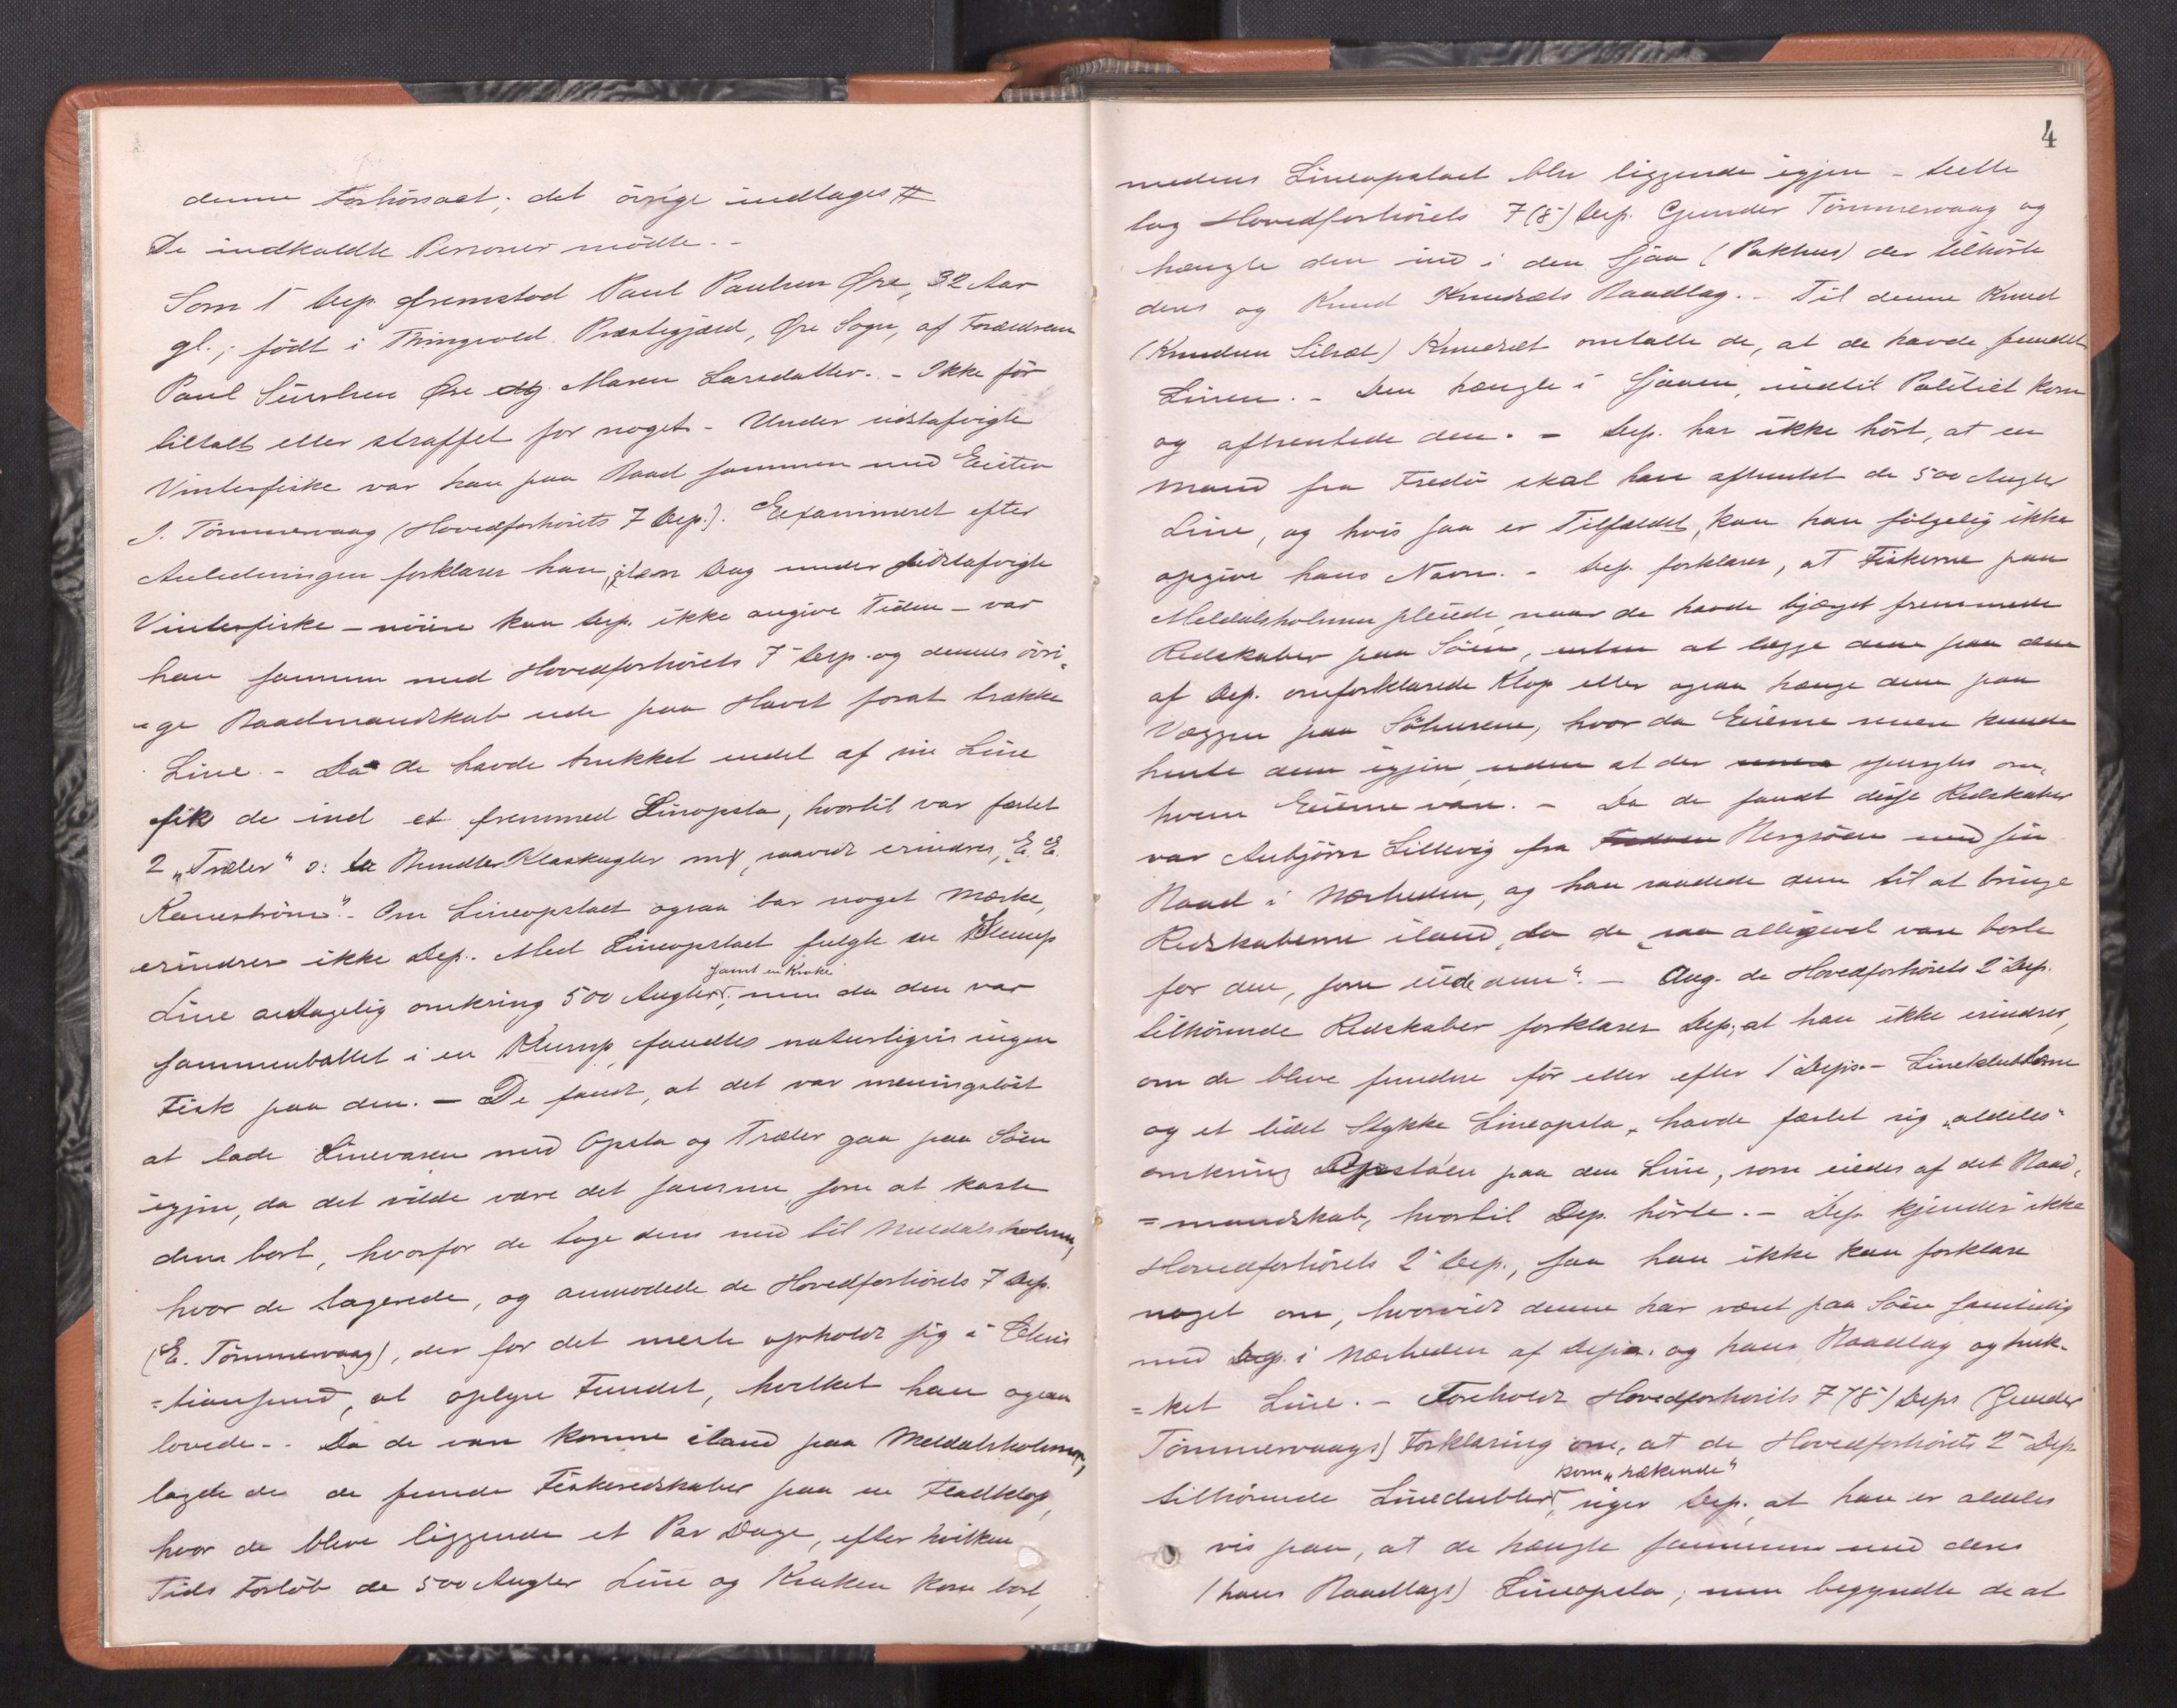 denne Forhørsact; det øvrige indtages #
De indkaldte Personer mødte. -
Som 1ste Dep. fremstod Paul Paulsen Øre, 32 Aar
gl.; født i Thingvold Præstegjæld, Øre Sogn, af Forældrene
Paul Øre og Maren Larsdatter. - Ikke før
tiltalt eller straffet for noget. - Under sidstafvigte
Vinterfiske var han paa Baad sammen med
I. Tømmervaag (Hovedforhørets 7 Dep.). Examineret efter
Anledningen forklarer han: en Dag under sidstafvigte
Vinterfiske - nøiere kan Dep. ikke angive Tiden - var
han sammen med Hovedforhørets 7de Dep. og dennes øvri-
-ge Baadmandskab ude paa Havet forat trække
Line. - Da de havde trukket endel af sin Line
fik de ind et fremmed Lineopsta, hvortil var fæstet
2 "Træler" o: Bundter Glaskugler mrk, saavidt erindres, E. E.
Kanestrøm". - Om Lineopstaet ogsaa bar noget Mærke,
erindrer ikke Dep. Med Lineopstaet fulgte en Klump
Line antagelig omkring 500 Angler samt en Krake; men da den var
sammenballet i en Klump, fandtes naturligvis ingen
Fisk paa den. - De fandt, at det var meningsløst
at lade Linevasen med Opsta og Træler gaa paa Søen
igjen, da det vilde være det samme, som at kaste
dem bort, hvorfor de toge dem med til Meldalsholmen,
hvor de lagerede, og anmodede de Hovedforhørets 7 Dep.
(E. Tømmervaag), der for det meste opholdt sig i Chris
=tiansund, at oplyse Fundet, hvilket han ogsaa
lovede. - Da de vare komne iland paa Meldalsholmen,
lagde de de fundne Fiskeredskaber paa en Fladklop,
hvor de bleve liggende et Par Dage, efter hvilken
Tids Forløb de 500 Angler Line og Kraken kom bort,
4
medens Lineopstaet blev liggende igjen - dette
tog Hovedforhørets 7 (8) Dep. Gunder Tømmervaag og
hængte den ind i den Sjaa (Pakhus) der tilhørte
deres og Knud Knudsøts Baadlag. - Til denne Knud
(Knudsen Silsæt) Knudsøt omtalte de, at de havde fundet
Linen. - Den hængte i Sjaaen, indtil Politiet kom
og afhentede den. - Dep. har ikke hørt, at en
Mand fra Fredø skal have afhentet de 500 Angler
Line, og hvis saa er Tilfældet, kan han følgelig ikke
opgive hans Navn. - Dep. forklarer, at Fiskerne paa
Meldalsholmen pleiede, naar de havde bjærget fremmede
Redskaber paa Søen, enten at lægge dem paa den
af Dep. omforklarede Klop eller ogsaa hænge dem paa
Væggen paa Søhusene, hvor da Eierne kunde
hente dem igjen, uden at der spurgtes om,
hvem Eierne vare. - Da de fandt disse Redskaber
var Anbjørn Lillevig fra Bergsøen med sin
Baad i Nærheden, og han raadede dem til at bringe
Redskaberne iland, da de "saa alligevel vare borte
for den, som eiede dem". - Ang. de Hovedforhørets 2det Dep.
tilhørende Redskaber forklarer Dep., at han ikke erindrer,
om de bleve fundne før eller efter 1ste Deps. - Lineklubberne
og et lidet Stykke Lineopsta, havde fæstet sig "aldeles"
omkring Opstaen paa den Line, som eiedes af det Baad,
=mandskab, hvortil Dep. hørte. - Dep. kjender ikke
Hovedforhørets 2det Dep., saa han ikke kan forklare
noget om, hvorvidt denne har været paa Søen samtidig
med Dep. i Nærheden af Deps. og hans Baadlag og truk-
=ket Line. - Foreholdt Hovedforhørets 7 (8) Deps (Gunder
Tømmervaags) Forklaring om, at de Hovedforhørets 2det Dep.
tilhørende Lineklubber kom "rækende", siger Dep. at han er aldeles
vis paa, at de hængte sammen med deres
(hans Baadlags) Lineopsta; men begyndte de at